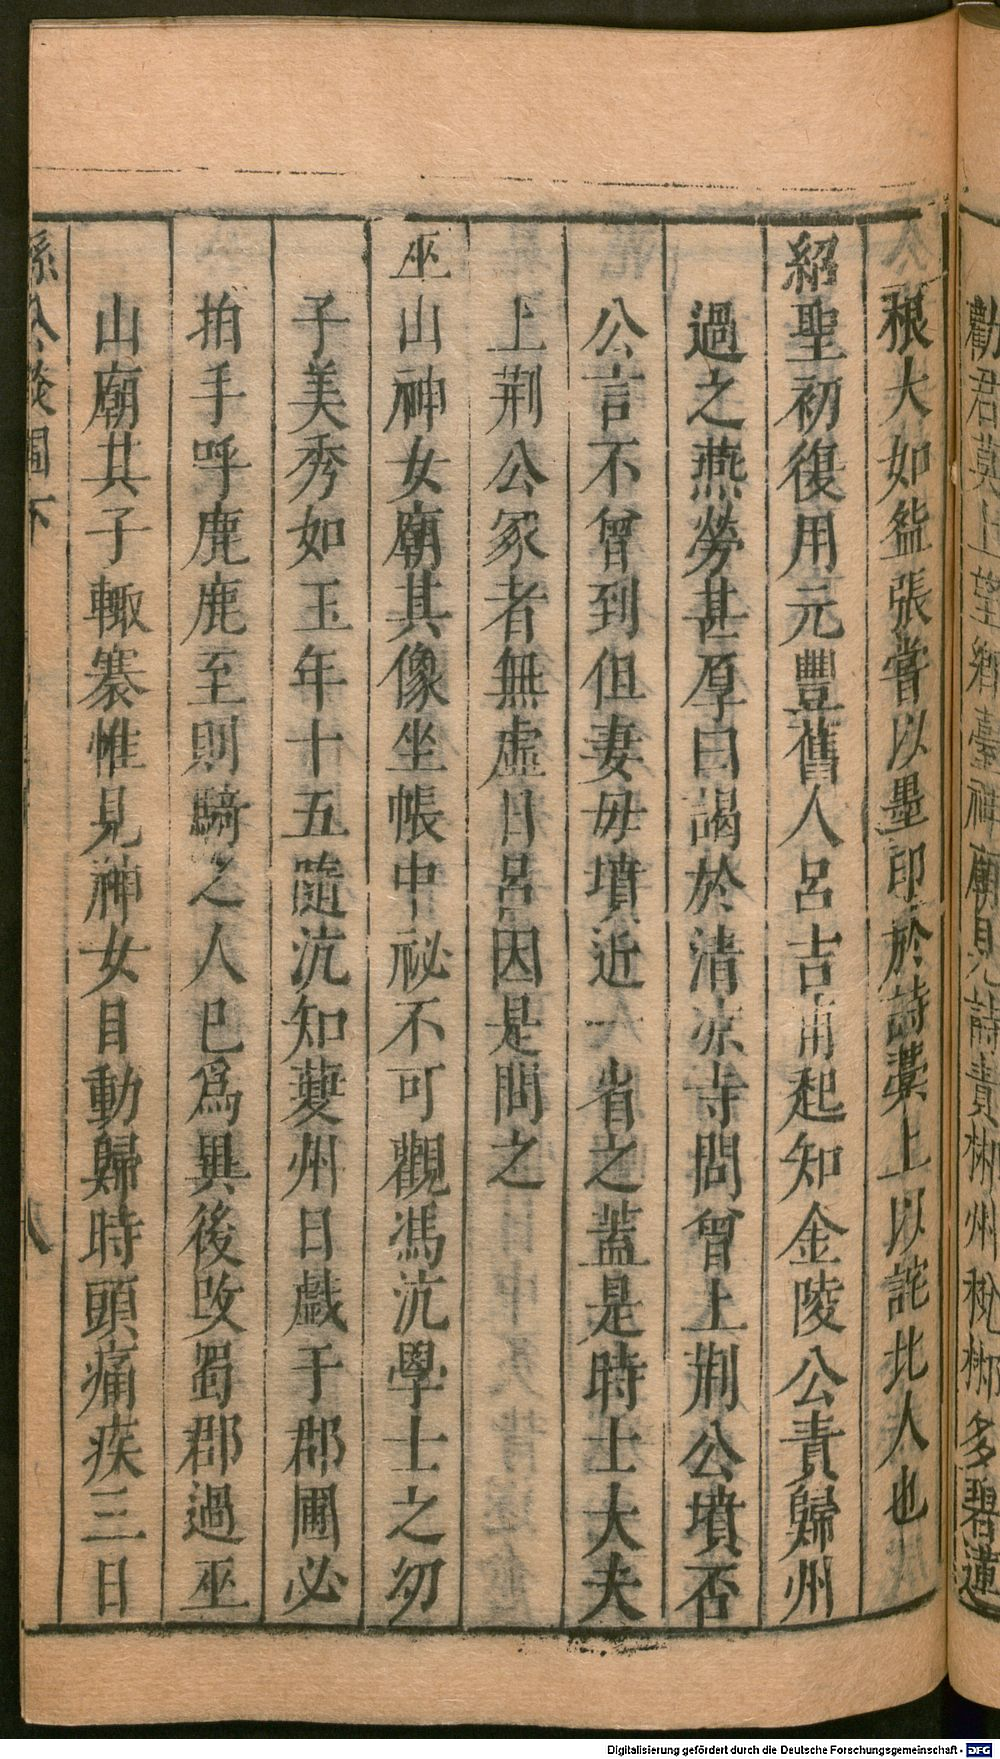 勸君莫上望鄉臺神廟見詩責郴州秖郴多碧蓮
根大如盌張嘗以墨印於詩藁上以詫北人也
紹聖初復用元豐舊人呂吉甫起知金陵公責歸州
過之燕勞甚厚曰謁於清凉寺問曾上荆公墳否
公言不曾到但妻毋墳近一省之蓋是時士大夫
上荆公冢者無虛日呂因是問之
巫山神女廟其像坐帳中祕不可觀馮沆學士之㓜
子美秀如玉年十五隨沆知䕫州日戯于郡圃必
拍手呼鹿鹿至則騎之人已爲異後改蜀郡過巫
山廟其子輙褰帷見神女目動歸時頭痛疾三日
孫公談圃下
八
Digitalisierung gefördert durch die Deutsche Forschungsgemeinschaft - DFG